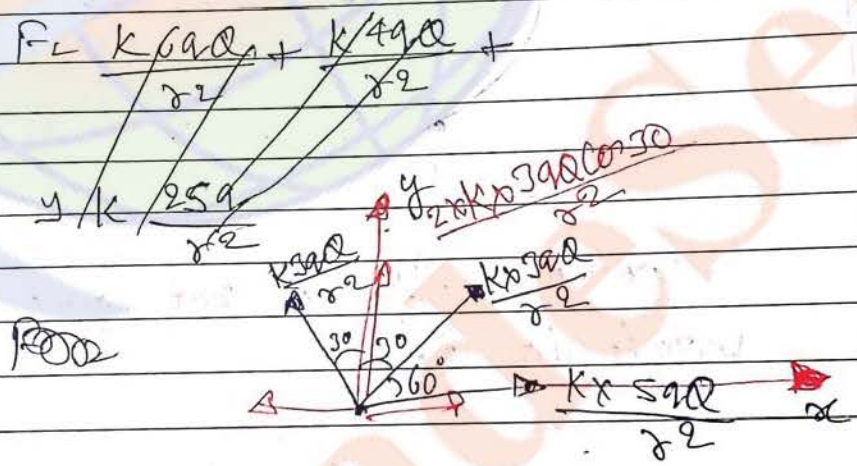 F = K 6qQ / r2 + K 4qQ / r2 +
y K 25q / r2
y
2xKx3qQ Cos 30 / r2
K3qQ / r2
Kx3qQ / r2
30 30
60°
Kx 5qQ / r2
x